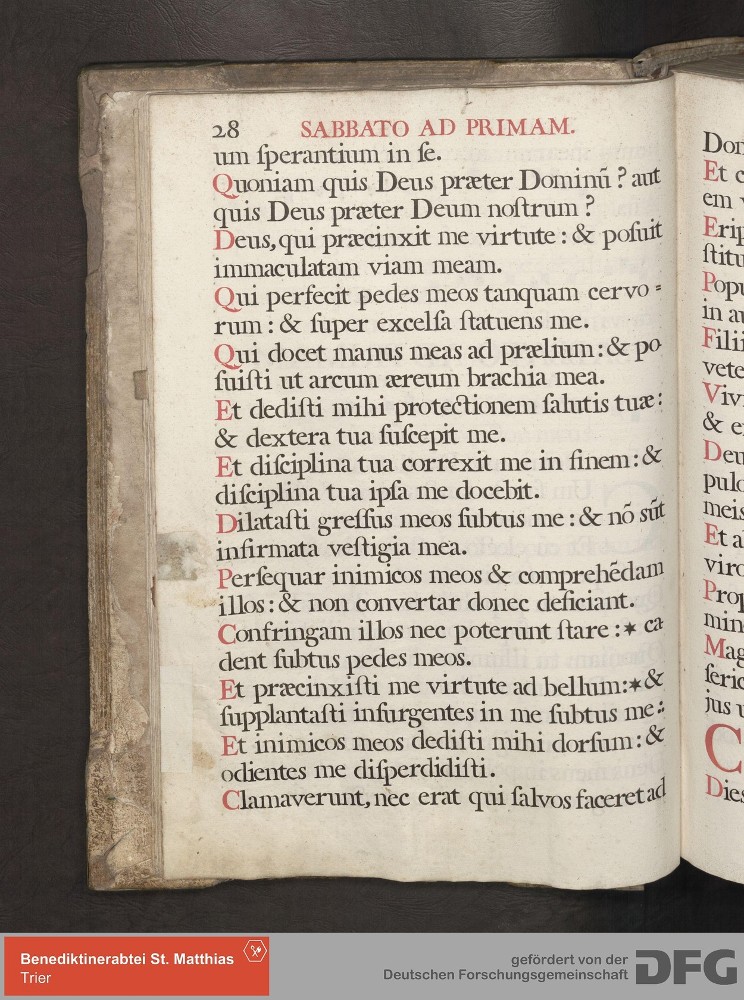 28 SABBATO AD PRIMAM.
um ſperantium in ſe.
Quoniam quis Deus præter Dominũ ? aut
quis Deus præter Deum noſtrum ?
Deus, qui præcinxit me virtute : & poſuit
immaculatam viam meam.
Qui perfecit pedes meos tanquam cervo⸗
rum : & ſuper excelſa ſtatuens me.
Qui docet manus meas ad prælium : & po
ſuiſti ut arcum æreum brachia mea.
Et dediſti mihi protectionem ſalutis tuæ :
& dextera tua ſuſcepit me.
Et diſciplina tua correxit me in finem : &
diſciplina tua ipſa me docebit.
Dilataſti greſſus meos ſubtus me : & nõ sũt
infirmata veſtigia mea.
Perſequar inimicos meos & comprehẽdam
illos : & non convertar donec deficiant.
Confringam illos nec poterunt ſtare : * ca
dent ſubtus pedes meos.
Et præcinxiſti me virtute ad bellum : * &
ſupplantaſti inſurgentes in me ſubtus me :
Et inimicos meos dediſti mihi dorſum : &
odientes me diſperdidiſti.
Clamaverunt, nec erat qui ſalvos faceret ad
Et
em
in
&
Et
jus
C
Benediktinerabtei St. Matthias
Trier
gefördert von der
Deutschen Forschungsgemeinschaft
DFG